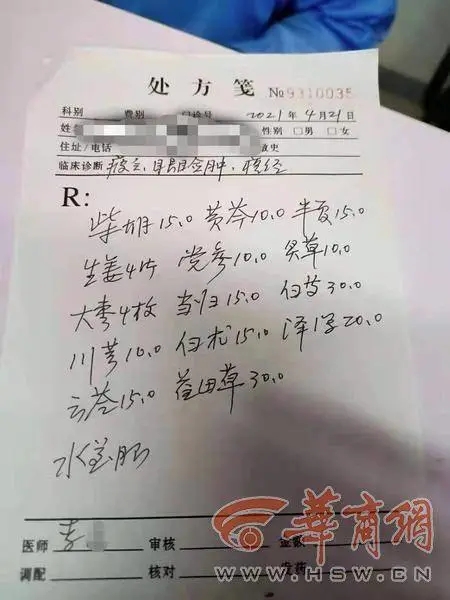 处方笺 №9310035
科别 费别 门诊号 2021年4月21日
姓名 性别 □男 □女
住址/电话 敏史
临床诊断 疲乏、眼睑肿、痛经
R:
柴胡15.0 黄芩10.0 半夏15.0
生姜4片 党参10.0 炙草10.0
大枣4枚 当归15.0 白芍30.0
川芎10.0 白术15.0 泽泻20.0
云苓15.0 草30.0
水煎服
医师 李 审核 金额
调配 核对 发药
華商網
WWW.HSW.CN